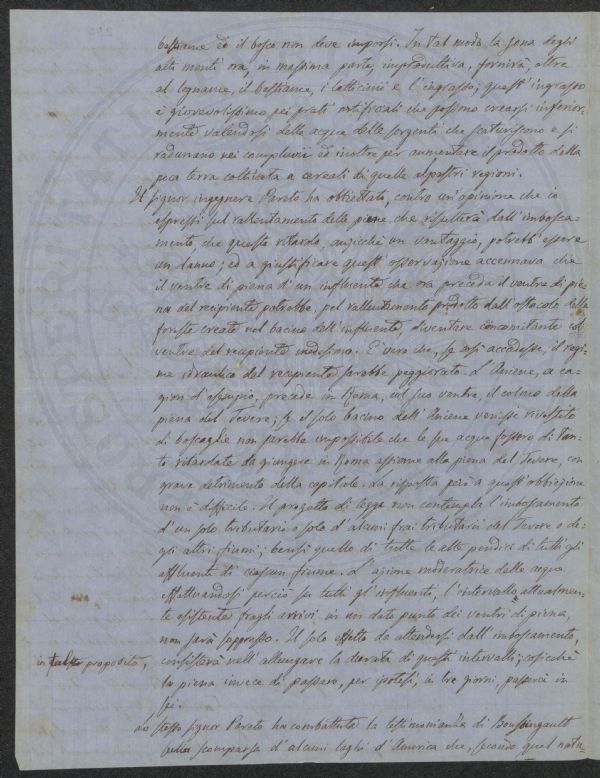 bestiame ed il bosco non deve imporsi. In tal modo la zona degli
alti monti ora, in massima parte, improduttiva, fornirà, oltre
al legname, il bestiame, i latticini e l'ingrasso; quest'ingrasso
è giovevolissimo pei prati artificiali che possono crearsi inferior-
mente valendosi delle acque delle sorgenti che scaturiscono e si
radunano nei compluvii ed inoltre per aumentare il prodotto della
poca terra coltivata a cereali di quelle alpestri regioni.
Il signor ingegnere Pareto ha obbiettato, contro un'opinione che io
espressi sul rallentamento delle piene che risulterà dall'imbosca-
mento, che questo ritardo, anzicchè un vantaggio, potrebbe essere
un danno; ed a giustificare quest'osservazione accennava che
il ventre di piena d'un influente che ora preceda il ventre di pie-
na del recipiente potrebbe, pel rallentamento prodotto dall'ostacolo delle
foreste create nel bacino dell'influente, diventare concomitante col
ventre del recipiente medesimo. È vero che, se così accadesse, il regi-
me idraulico del recipiente sarebbe peggiorato. L'Aniene, a ca-
gion d'esempio, precede in Roma, col suo ventre, il colmo della
piena del Tevere; se il solo bacino dell'Aniene venisse rivestito
di boscaglie non sarebbe impossibile che le sue acque fossero di tan-
to ritardate da giungere in Roma assieme alla piena del Tevere, con
grave detrimento della capitale. La risposta però a quest'obbiezione
non è difficile. Il progetto di legge non contempla l'imboscamento
d'un solo tributario o solo d'alcuni fra i tributarii del Tevere o de-
gli altri fiumi; bensì quello di tutte le alte pendici di tutti gli
affluenti di ciascun fiume. L'azione moderatrice delle acque
effettuandosi perciò su tutti gl'influenti, l'intervallo attualmen-
te esistente fra gli arrivi in un dato punto dei ventri di piena,
non sarà soppresso. Il solo effetto da attendersi dall'imboscamento,
in tale proposito,
consisterà nell'allungare la durata di questi intervalli; cosicchè
la piena invece di passare, per ipotesi, in tre giorni, passerà in
sei.
Lo stesso signor Pareto ha combattuta la testimonianza di Boussingault
sulla scomparsa d'alcuni laghi d'America che, secondo quel natu-